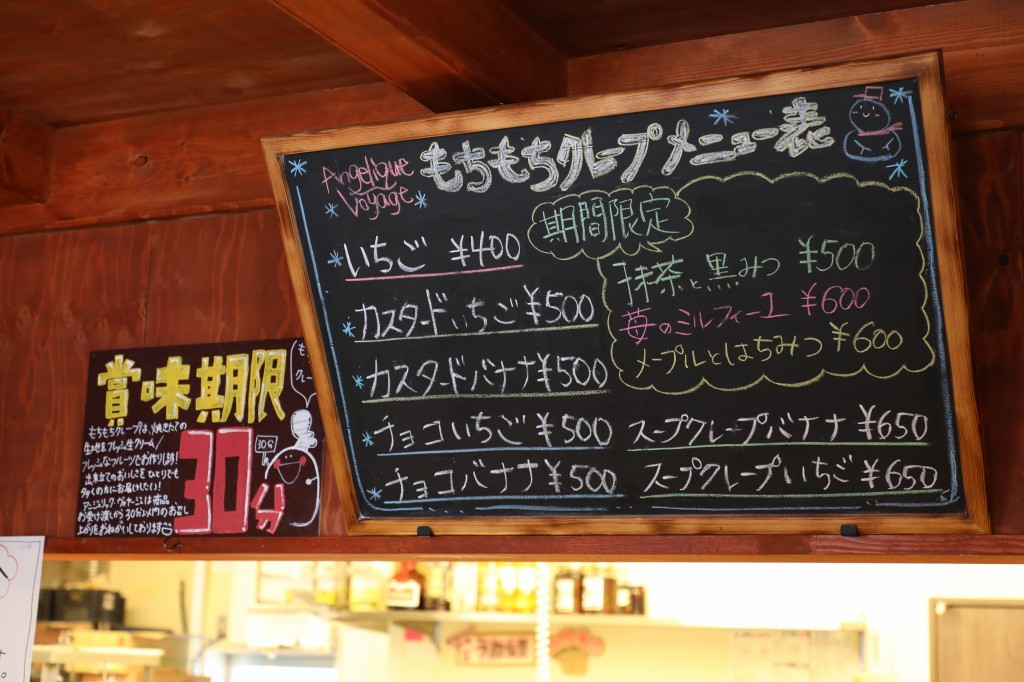 Angelique
Voyage
もちもちクレープメニュー表
いちご ¥400
カスタードいちご ¥500
カスタードバナナ ¥500
チョコいちご ¥500
チョコバナナ ¥500
期間限定
抹茶と黒みつ ¥500
苺のミルフィーユ ¥600
メープルとはちみつ ¥600
スープクレープバナナ ¥650
スープクレープいちご ¥650
賞味期限
もちもちクレープは、焼きたての
生地をフレッシュ生クリーム/
フレッシュなフルーツでお作りします!
出来立てのおいしさをひとりでも
多くの方にお届けしたい!
アンジェリック・ヴォヤージュは商品
お受け渡しから30分以内のお召し
上がりをおねがいしております
30分
30分